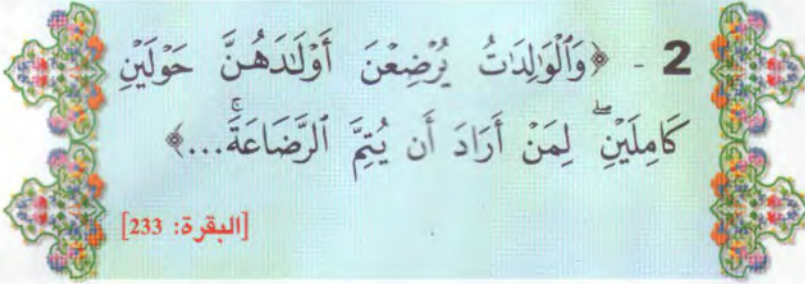 2 - ﴿وَٱلْوَٰلِدَٰتُ يُرْضِعْنَ أَوْلَٰدَهُنَّ حَوْلَيْنِ
كَامِلَيْنِ ۖ لِمَنْ أَرَادَ أَن يُتِمَّ ٱلرَّضَاعَةَ ۚ...﴾
[البقرة: 233]